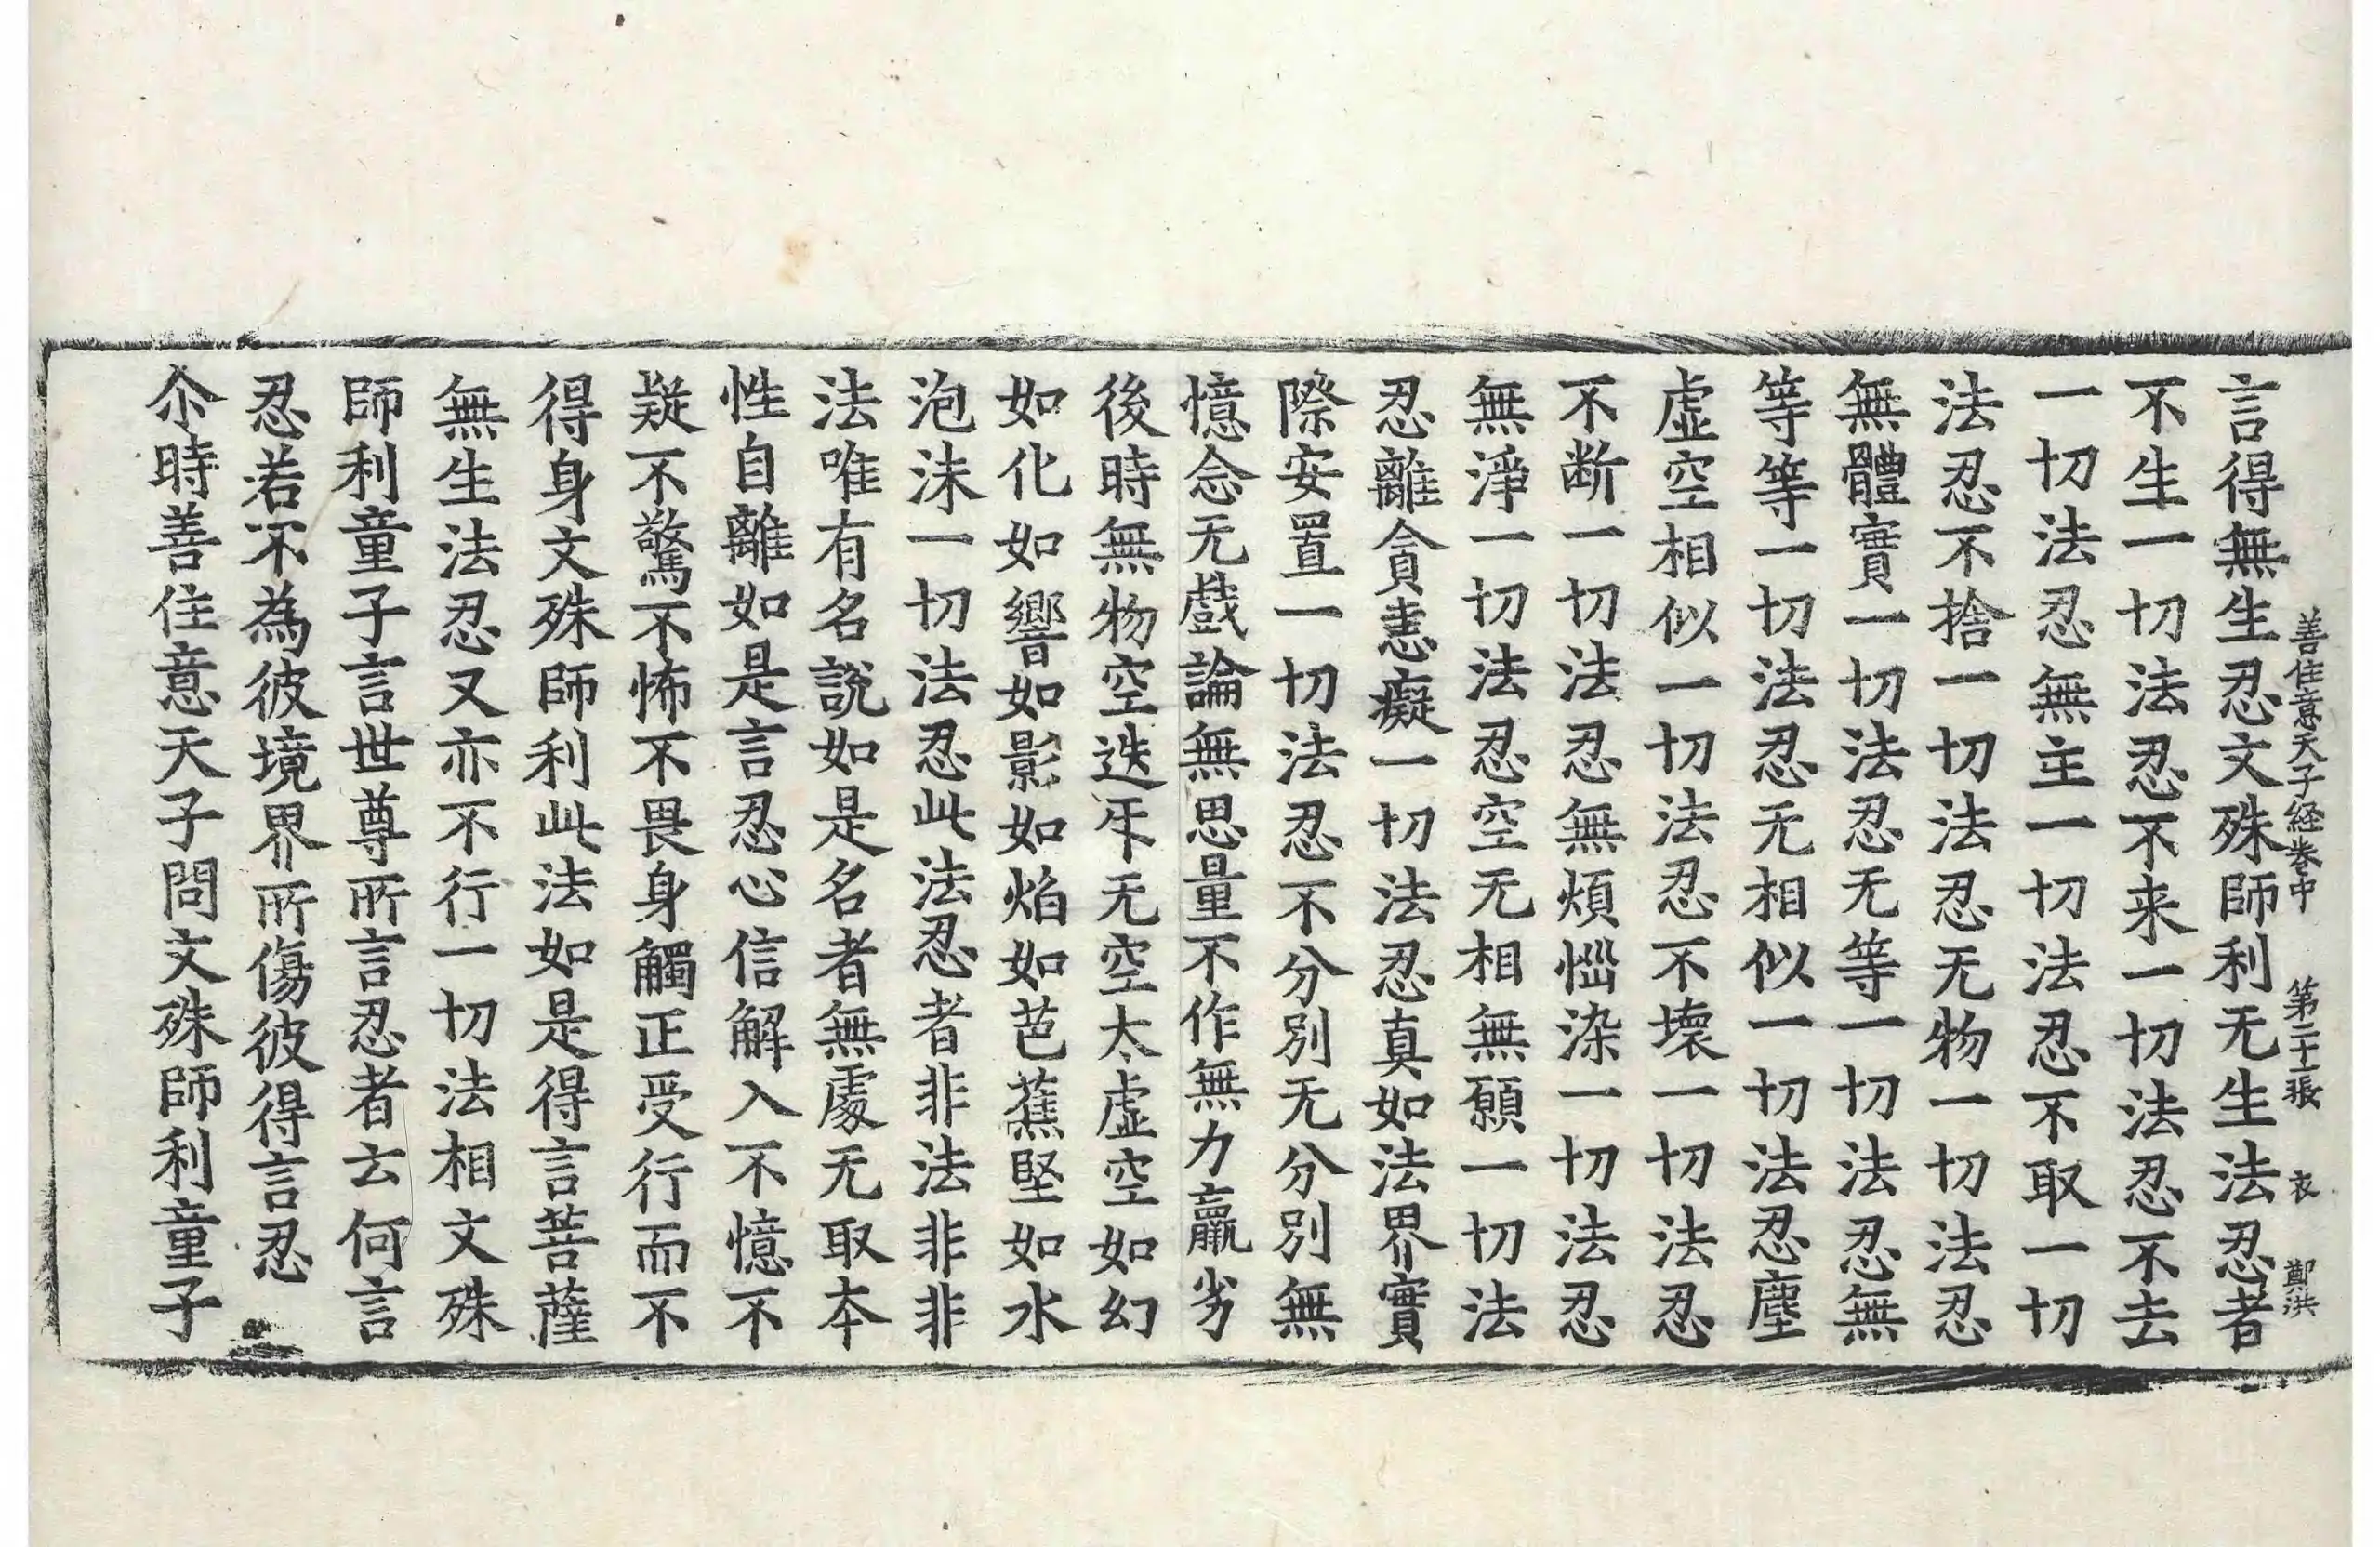 善住意天子経卷中　第二十一張　衣　鄭洪
言得無生忍文殊師利无生法忍者
不生一切法忍不来一切法忍不去
一切法忍無主一切法忍不取一切
法忍不捨一切法忍无物一切法忍
無體實一切法忍无等一切法忍無
等等一切法忍无相似一切法忍塵
虚空相似一切法忍不壞一切法忍
不断一切法忍無煩惱染一切法忍
無淨一切法忍空无相無願一切法
忍離貪恚癡一切法忍真如法界實
際安置一切法忍不分別无分別無
憶念无戲論無思量不作無力羸劣
後時無物空迭𠃨无空太虚空如幻
如化如響如影如焰如芭蕉堅如水
泡沫一切法忍此法忍者非法非非
法唯有名說如是名者無處无取本
性自離如是言忍心信解入不憶不
疑不驚不怖不畏身觸正受行而不
得身文殊師利此法如是得言菩薩
無生法忍又亦不行一切法相文殊
師利童子言世尊所言忍者云何言
忍若不為彼境界所傷彼得言忍
尒時善住意天子問文殊師利童子